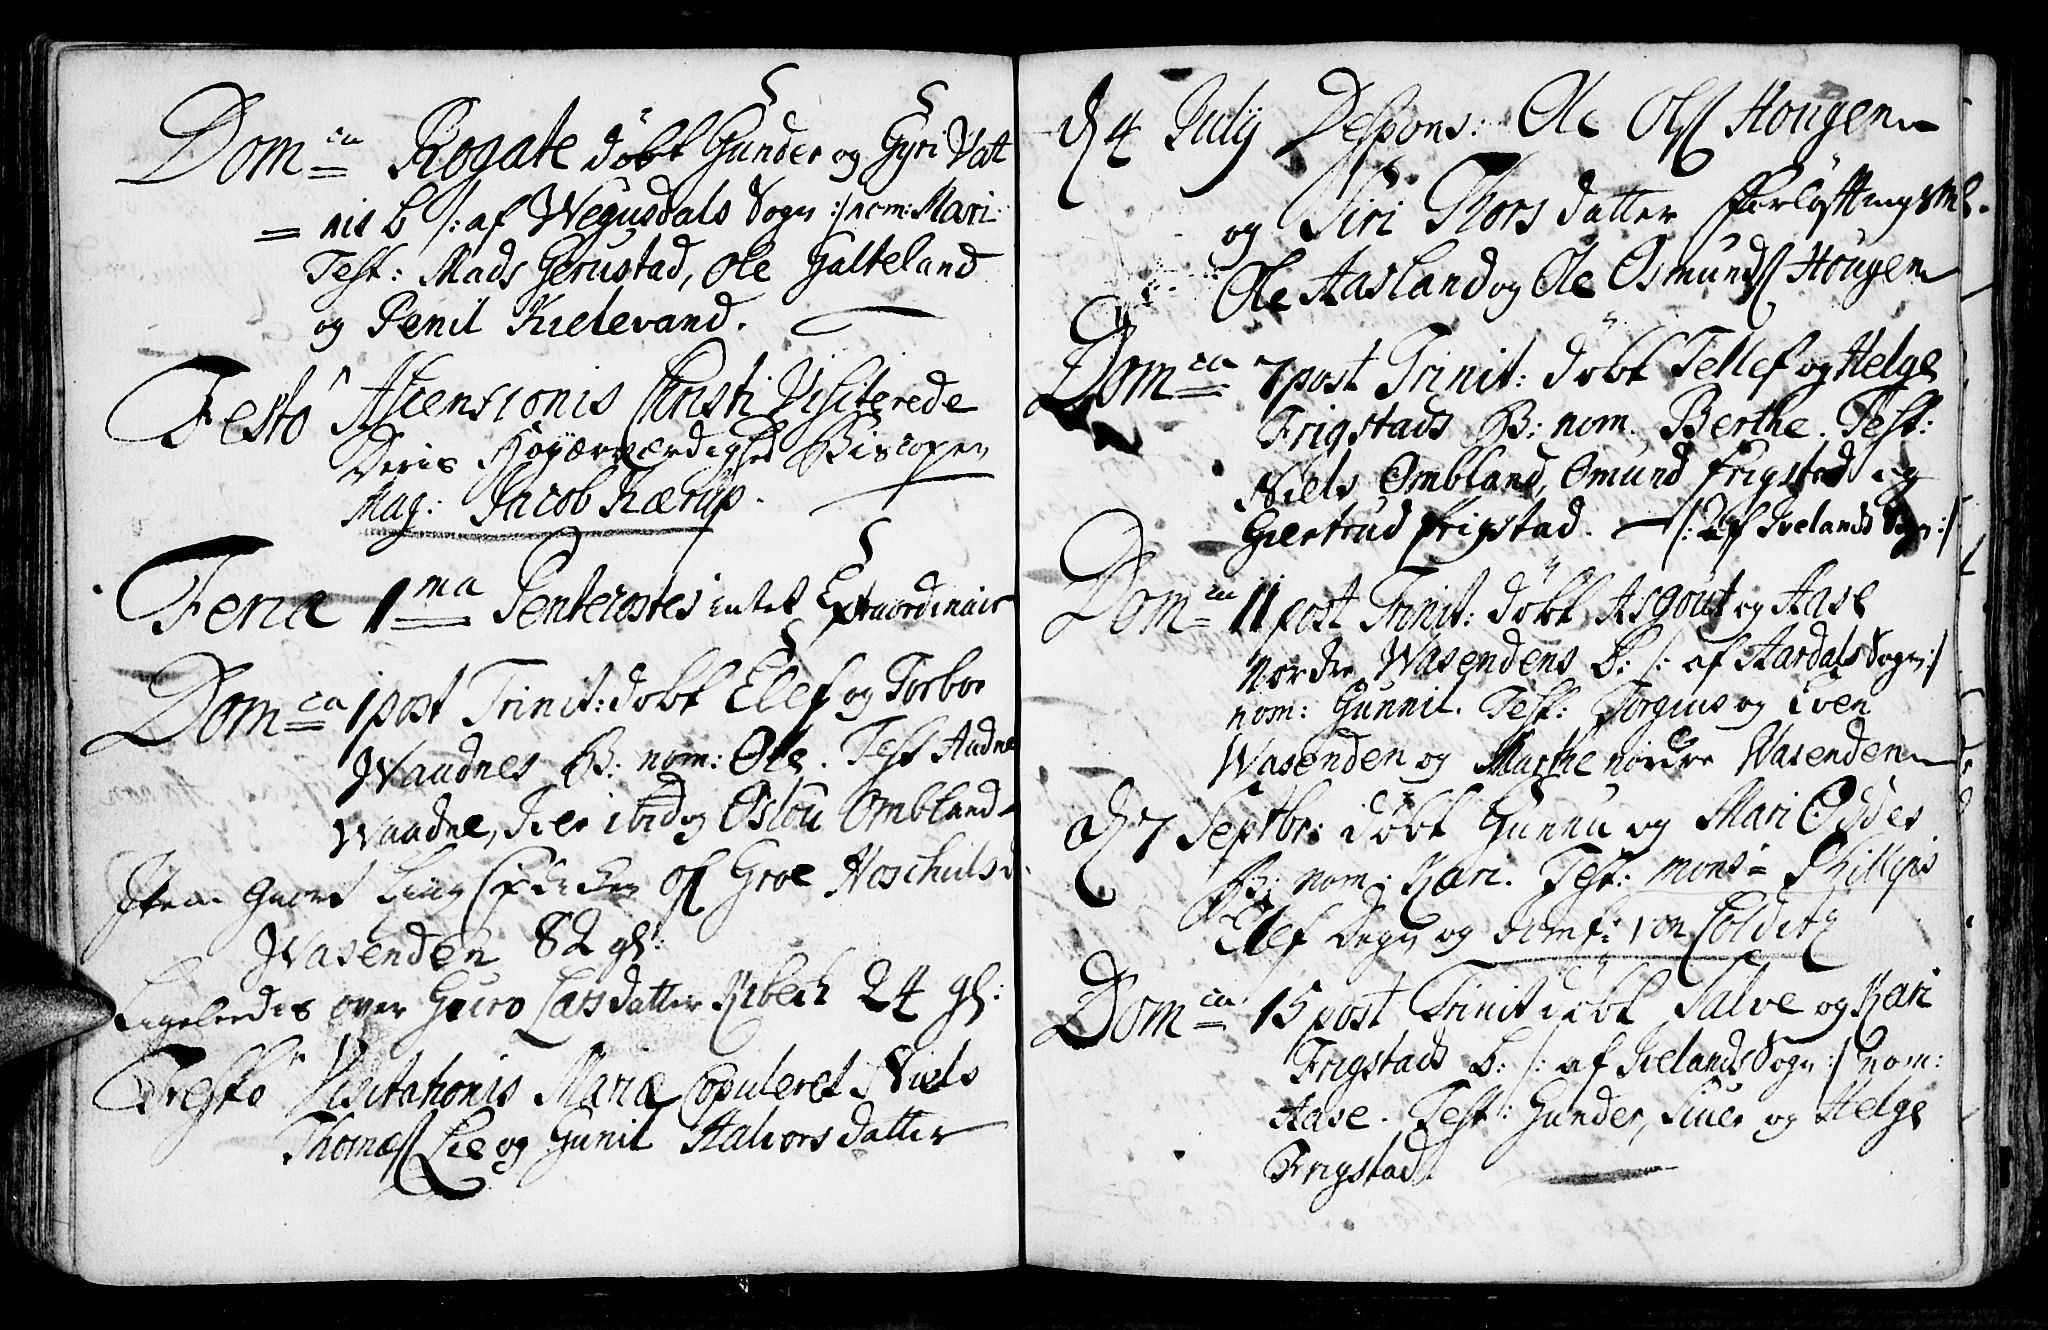 Dom<sup>ca</sup> Rogate döbt Gunder og Gyri Vatt
= nis b /: af Wegusdals Sogn :/ nom: Mari.
Test: Mads Gerustad, Ole Galteland
og Penil Kielevand.
Festo Ascensionis Christi Visiterede
Deris Höyærværdighed Biscopen
Mag: Jacob Kærup.
Feria 1<sup>ma</sup> Pentecostes intet Extraordinair
Dom<sup>ca</sup> 1 post Trinit: döbt Elef og Torbor
Waadnes B: nom: Ole. Test Aadne
Waadne, Sier ibid og Oslou Ombland
giort Liig af Groe
Wasenden 82 gl:
Ligeledis over Guro Larsdatter Ribech 24 gl:
Festo Visitationis Mariæ Copuleret Niels
Thomes Lie og Gunil Halvorsdatter
d 4 July Despons: Ole Ols Hougen
og Siri Thorsdatter Forlöftningsm.
Ole Aasland og Ole Osmunds Hougen
Dom<sup>ca</sup> 7 post Trinit: döbt Tellef og Helge
Frigstads B: nom. Berthe. Test:
Niels Ombland, Omund Frigstad og
Giertrud Frigstad. /: af Ivelands Sogn :/
Dom<sup>ca</sup> 11 post Trinit: döbt Asgout og Aase
Nordre Wasendens b: /: af Aardals Sogn :/
nom: Gunnil. Test: Torgius og Even
Wasenden og Marthe nordre Wasenden
d 7 Septbr: döbt Gunnu og Mari Oddes
B: nom: Kari. Test: Mons<sup>r</sup> Phillips
Elef Degn og Jomf: von Colditz
Dom<sup>ca</sup> 15 post Trinit döbt Salve og Kari
Frigstads b: /: af Ivelands Sogn :/ nom:
Aase. Test: Gunder, Siver og Helge
Frigstad.